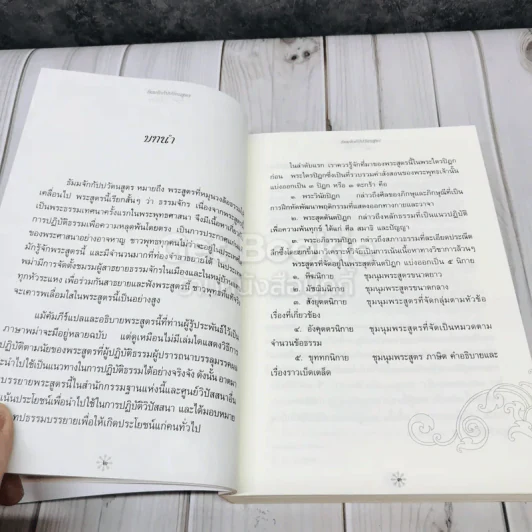 ธัมมจักกัปปวัตนสูตร
บทนำ
ธัมมจักกัปปวัตนสูตร หมายถึง พระสูตรที่หมุนวงล้อธรรมให้
เคลื่อนไป พระสูตรนี้เรียกสั้นๆ ว่า ธรรมจักร เนื่องจากพระสูตรนี้
เป็นพระธรรมเทศนาครั้งแรกในพระพุทธศาสนา จึงมีเนื้อหาเกี่ยวกับ
การปฏิบัติธรรมเพื่อความหลุดพ้นโดยตรง เป็นการประกาศแก่น
ของพระศาสนาอย่างอาจหาญ ชาวพุทธทุกคนไม่ว่าจะอยู่ในประเทศ
มักรู้จักพระสูตรนี้ และมีจำนวนมากที่ท่องจำสาธยายได้ ในประเทศ
พม่ามีการจัดตั้งชมรมผู้สาธยายธรรมจักรในเมืองและในหมู่บ้าน
ทุกหัวระแหง เพื่อร่วมกันสาธยายและฟังพระสูตรนี้ ชาวพุทธที่
จะเคารพเลื่อมใสในพระสูตรนี้เป็นอย่างสูง
แม้คัมภีร์แปลและอธิบายพระสูตรนี้ที่ท่านผู้รู้ประพันธ์ไว้เป็น
ภาษาพม่าจะมีอยู่หลายฉบับ แต่ดูเหมือนไม่มีเล่มใดแสดงวิธีการ
ปฏิบัติตามนัยของพระสูตรที่ผู้ปฏิบัติธรรมผู้ปรารถนาบรรลุมรรคผล
จะนำไปใช้เป็นแนวทางในการปฏิบัติธรรมได้อย่างจริงจัง ดังนั้น อาตมา
บรรยายพระสูตรนี้ในสำนักกรรมฐานแห่งนี้และศูนย์วิปัสสนาอื่น
เน้นประโยชน์เพื่อนำไปใช้ในการปฏิบัติวิปัสสนา และได้มอบหมาย
บทธรรมบรรยายเพื่อให้เกิดประโยชน์แก่คนทั่วไป
ธัมมจักกัปปวัตนสูตร
ในลำดับแรก เราควรรู้จักที่มาของพระสูตรนี้ในพระไตรปิฎก
ก่อน พระไตรปิฎกซึ่งเป็นที่รวบรวมคำสั่งสอนของพระพุทธเจ้านั้น
แบ่งออกเป็น ๓ ปิฎก หรือ ๓ ตะกร้า คือ
๑. พระวินัยปิฎก กล่าวถึงศีลของภิกษุและภิกษุณีที่เป็น
การฝึกหัดพัฒนาพฤติกรรมที่แสดงออกทางกายและวาจา
๒. พระสุตตันตปิฎก กล่าวถึงหลักธรรมที่เป็นแนวปฏิบัติ
เพื่อความพ้นทุกข์ ได้แก่ ศีล สมาธิ และปัญญา
๓. พระอภิธรรมปิฎก กล่าวถึงสภาวธรรมที่ละเอียดประณีต
ลึกซึ้ง
พระสูตรที่จัดอยู่ในพระสุตตันตปิฎก แบ่งออกเป็น ๕ นิกาย
๑. ทีฆนิกาย ชุมนุมพระสูตรขนาดยาว
๒. มัชฌิมนิกาย ชุมนุมพระสูตรขนาดกลาง
๓. สังยุตตนิกาย ชุมนุมพระสูตรที่จัดกลุ่มตามหัวข้อ
เรื่องที่เกี่ยวข้อง
๔. อังคุตตรนิกาย ชุมนุมพระสูตรที่จัดเป็นหมวดตาม
จำนวนข้อธรรม
๕. ขุททกนิกาย ชุมนุมพระสูตร ภาษิต คำอธิบายและ
เรื่องราวเบ็ดเตล็ด